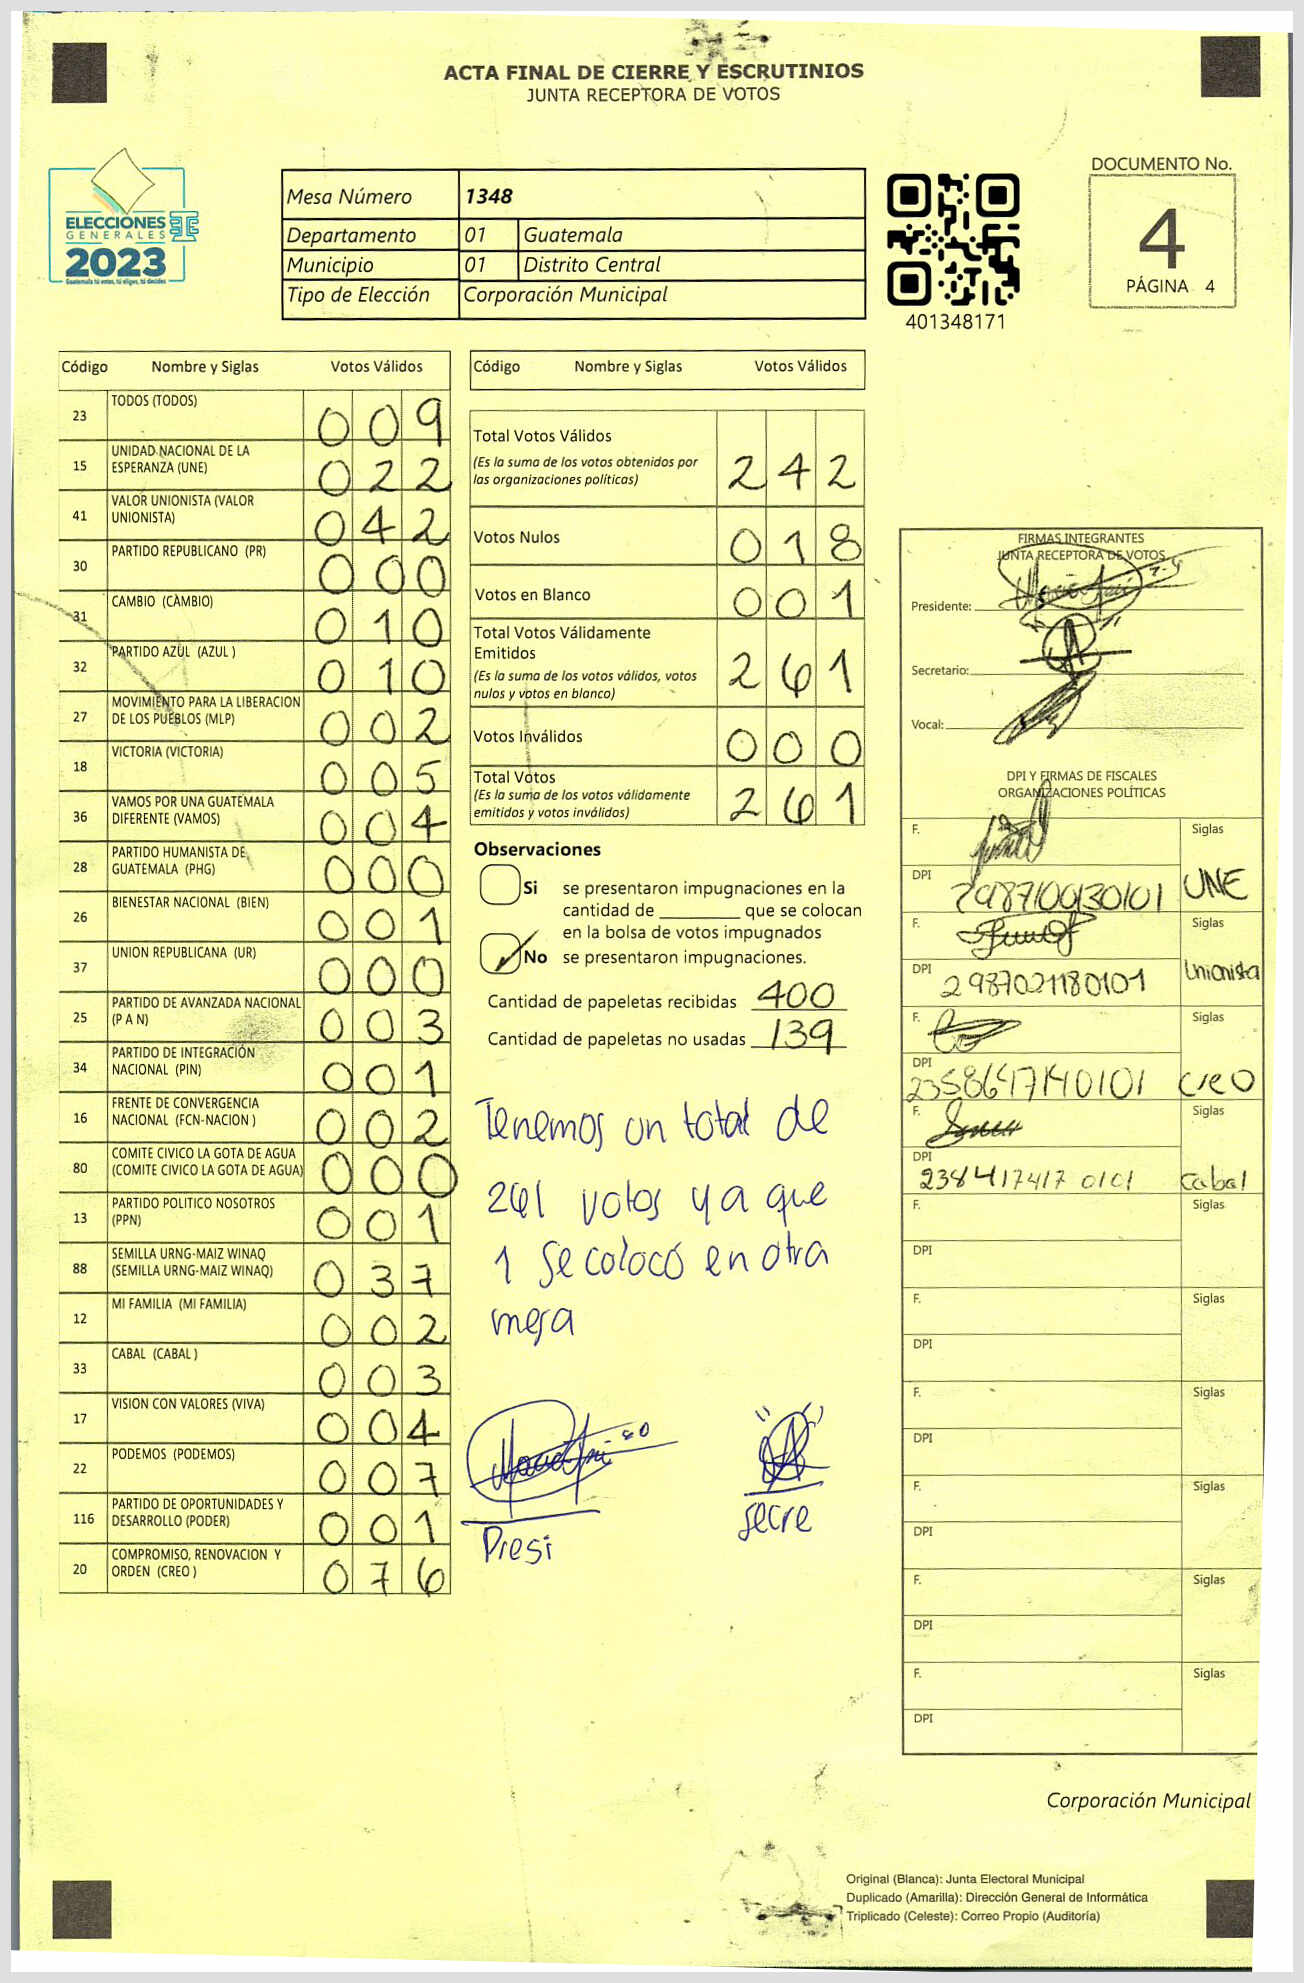 ACTA FINAL DE CIERRE Y ESCRUTINIOS
JUNTA RECEPTORA DE VOTOS
ELECCIONES
GENERALES
2023
Guatemala tú votas, tú eliges, tú decides
Mesa Número 1348
Departamento 01 Guatemala
Municipio 01 Distrito Central
Tipo de Elección Corporación Municipal
401348171
DOCUMENTO No.
4
PÁGINA 4
Código Nombre y Siglas Votos Válidos
23 TODOS (TODOS) 009
15 UNIDAD NACIONAL DE LA ESPERANZA (UNE) 022
41 VALOR UNIONISTA (VALOR UNIONISTA) 042
30 PARTIDO REPUBLICANO (PR) 000
31 CAMBIO (CÀMBIO) 010
32 PARTIDO AZUL (AZUL ) 010
27 MOVIMIENTO PARA LA LIBERACION DE LOS PUEBLOS (MLP) 002
18 VICTORIA (VICTORIA) 005
36 VAMOS POR UNA GUATEMALA DIFERENTE (VAMOS) 004
28 PARTIDO HUMANISTA DE GUATEMALA (PHG) 000
26 BIENESTAR NACIONAL (BIEN) 001
37 UNION REPUBLICANA (UR) 000
25 PARTIDO DE AVANZADA NACIONAL (P A N) 003
34 PARTIDO DE INTEGRACIÓN NACIONAL (PIN) 001
16 FRENTE DE CONVERGENCIA NACIONAL (FCN-NACION ) 002
80 COMITE CIVICO LA GOTA DE AGUA (COMITE CIVICO LA GOTA DE AGUA) 000
13 PARTIDO POLITICO NOSOTROS (PPN) 001
88 SEMILLA URNG-MAIZ WINAQ (SEMILLA URNG-MAIZ WINAQ) 037
12 MI FAMILIA (MI FAMILIA) 002
33 CABAL (CABAL ) 003
17 VISION CON VALORES (VIVA) 004
22 PODEMOS (PODEMOS) 007
116 PARTIDO DE OPORTUNIDADES Y DESARROLLO (PODER) 001
20 COMPROMISO, RENOVACION Y ORDEN (CREO ) 076
Código Nombre y Siglas Votos Válidos
Total Votos Válidos
(Es la suma de los votos obtenidos por
las organizaciones políticas) 242
Votos Nulos 018
Votos en Blanco 001
Total Votos Válidamente
Emitidos
(Es la suma de los votos válidos, votos
nulos y votos en blanco) 261
Votos Inválidos 000
Total Votos
(Es la suma de los votos válidamente
emitidos y votos inválidos) 261
Observaciones
Si se presentaron impugnaciones en la
cantidad de ________ que se colocan
en la bolsa de votos impugnados
No se presentaron impugnaciones.
Cantidad de papeletas recibidas 400
Cantidad de papeletas no usadas 139
Tenemos un total de
261 votos ya que
1 se colocó en otra
mesa
Presi
secre
FIRMAS INTEGRANTES
JUNTA RECEPTORA DE VOTOS
Presidente:
Secretario:
Vocal:
DPI Y FIRMAS DE FISCALES
ORGANIZACIONES POLÍTICAS
F. Siglas
DPI 2987100930101 UNE
F. Siglas
DPI 2987021180101 Unionista
F. Siglas
DPI 2358647140101 Creo
F. Siglas
DPI 2384174170101 Cabal
F. Siglas
DPI
F. Siglas
DPI
F. Siglas
DPI
F. Siglas
DPI
F. Siglas
DPI
F. Siglas
DPI
Corporación Municipal
Original (Blanca): Junta Electoral Municipal
Duplicado (Amarilla): Dirección General de Informática
Triplicado (Celeste): Correo Propio (Auditoría)